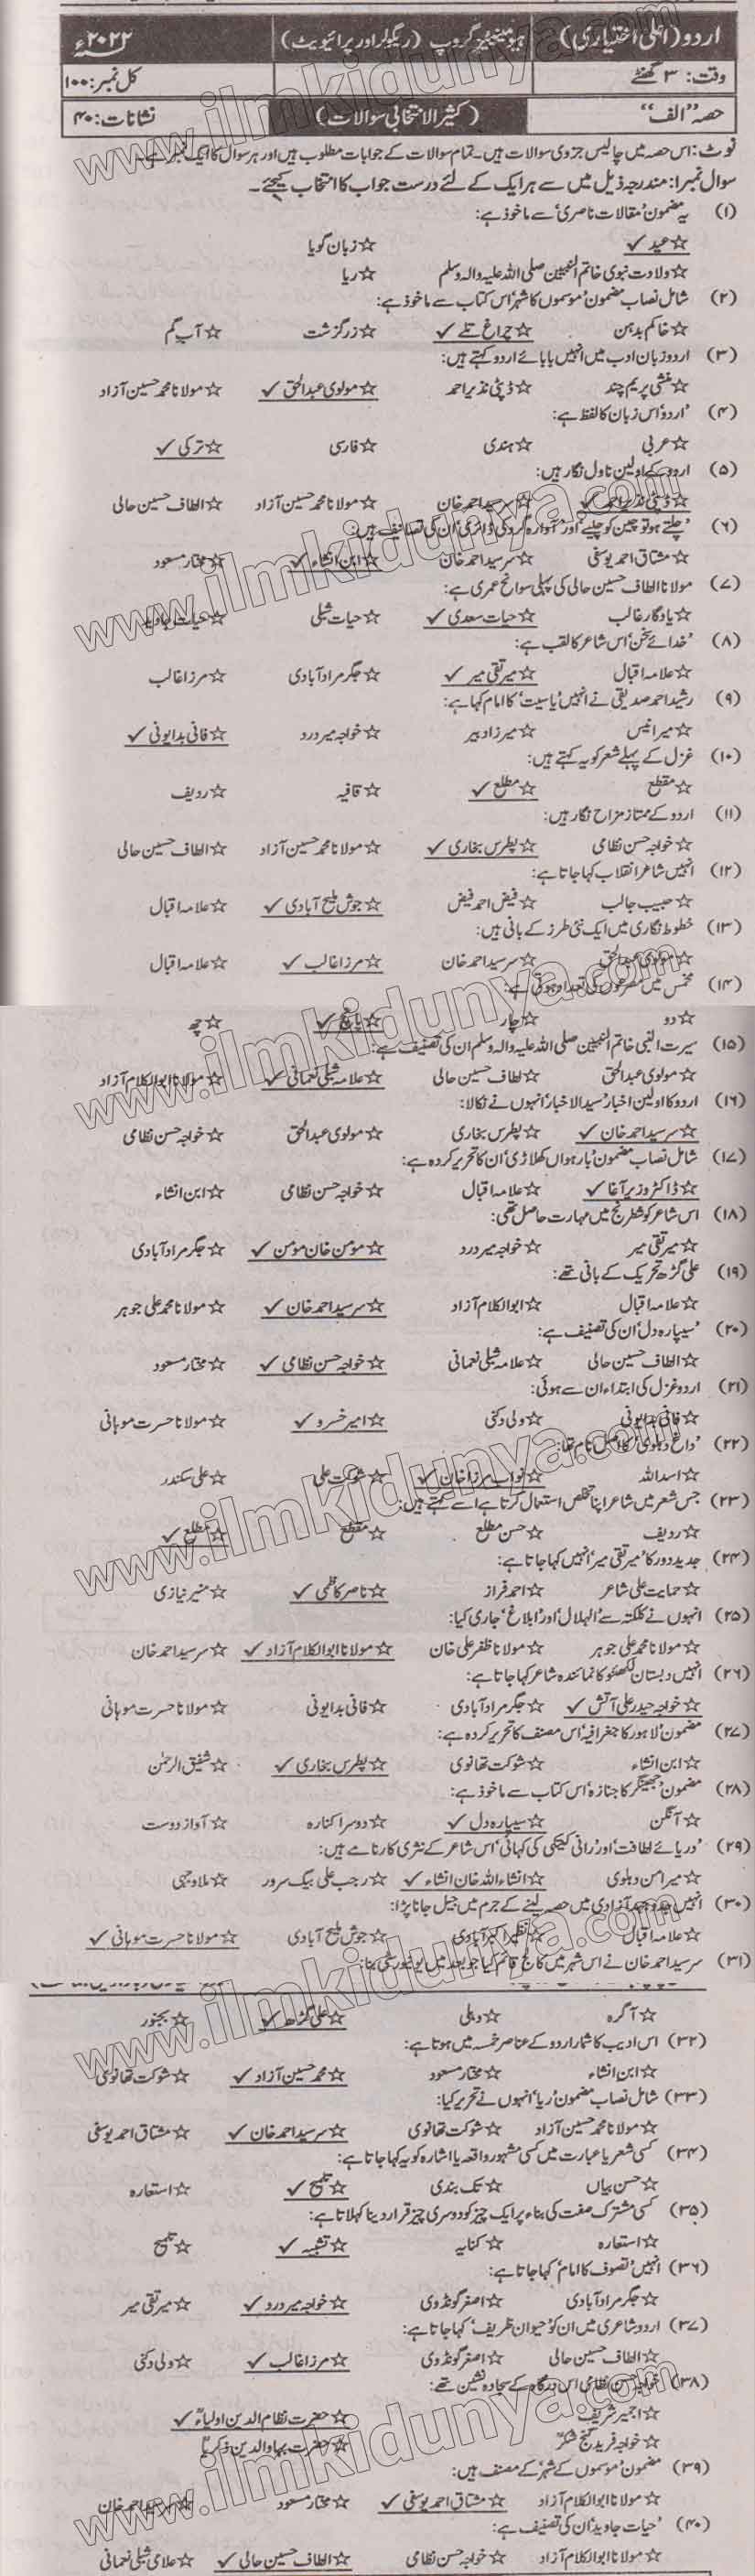 اردو (اعلیٰ اختیاری) ہیومینیٹیز گروپ (ریگولر اور پرائیویٹ) ۲۰۲۲ء
وقت: ۳ گھنٹے کل نمبر: ۱۰۰
حصہ "الف" (کثیر الانتخابی سوالات) نشانات: ۴۰
نوٹ: اس حصہ میں چالیس جزوی سوالات ہیں۔ تمام سوالات کے جوابات مطلوب ہیں اور ہر سوال کا ایک نمبر ہے۔
سوال نمبر۱: مندرجہ ذیل میں سے ہر ایک کے لئے درست جواب کا انتخاب کیجئے۔
(۱) یہ مضمون 'مقالات ناصری' سے ماخوذ ہے:
☆ عید ✓ ☆ زبان گویا
☆ ولادت نبوی خاتم النبیین صلی اللہ علیہ والہ وسلم ☆ ریا
(۲) شامل نصاب مضمون 'موسموں کا شہر' اس کتاب سے ماخوذ ہے:
☆ خاکم بدہن ☆ چراغ تلے ✓ ☆ زرگزشت ☆ آب گم
(۳) اردو زبان ادب میں انہیں بابائے اردو کہتے ہیں:
☆ منشی پریم چند ☆ ڈپٹی نذیر احمد ☆ مولوی عبدالحق ✓ ☆ مولانا محمد حسین آزاد
(۴) 'اردو' اس زبان کا لفظ ہے:
☆ عربی ☆ ہندی ☆ فارسی ☆ ترکی ✓
(۵) اردو کے اولین ناول نگار ہیں:
☆ ڈپٹی نذیر احمد ✓ ☆ سرسید احمد خان ☆ مولانا محمد حسین آزاد ☆ الطاف حسین حالی
(۶) 'چلتے ہو تو چین کو چلیے' اور 'آوارہ گرد کی ڈائری' ان کی تصانیف ہیں:
☆ مشتاق احمد یوسفی ☆ سرسید احمد خان ☆ ابن انشاء ✓ ☆ مختار مسعود
(۷) مولانا الطاف حسین حالی کی پہلی سوانح عمری ہے:
☆ یادگار غالب ☆ حیات سعدی ✓ ☆ حیات شبلی ☆ حیات جاوید
(۸) 'خدائے سخن' اس شاعر کا لقب ہے:
☆ علامہ اقبال ☆ میر تقی میر ✓ ☆ جگر مراد آبادی ☆ مرزا غالب
(۹) رشید احمد صدیقی نے انہیں 'یاسیت' کا امام کہا ہے:
☆ میر انیس ☆ میرزا دبیر ☆ خواجہ میر درد ☆ فانی بدایونی ✓
(۱۰) غزل کے پہلے شعر کو یہ کہتے ہیں:
☆ مقطع ☆ مطلع ✓ ☆ قافیہ ☆ ردیف
(۱۱) اردو کے ممتاز مزاح نگار ہیں:
☆ خواجہ حسن نظامی ☆ پطرس بخاری ✓ ☆ مولانا محمد حسین آزاد ☆ الطاف حسین حالی
(۱۲) انہیں شاعر انقلاب کہا جاتا ہے:
☆ حبیب جالب ☆ فیض احمد فیض ☆ جوش ملیح آبادی ✓ ☆ علامہ اقبال
(۱۳) خطوط نگاری میں ایک نئی طرز کے بانی ہیں:
☆ مولوی عبدالحق ☆ سرسید احمد خان ☆ مرزا غالب ✓ ☆ علامہ اقبال
(۱۴) مخمس میں مصرعوں کی تعداد ہوتی ہے:
☆ دو ☆ چار ☆ پانچ ✓ ☆ چھ
(۱۵) سیرت النبی خاتم النبیین صلی اللہ علیہ والہ وسلم ان کی تصنیف ہے:
☆ مولوی عبدالحق ☆ لطاف حسین حالی ☆ علامہ شبلی نعمانی ✓ ☆ مولانا ابوالکلام آزاد
(۱۶) اردو کا اولین اخبار 'سید الاخبار' انہوں نے نکالا:
☆ سرسید احمد خان ✓ ☆ پطرس بخاری ☆ مولوی عبدالحق ☆ خواجہ حسن نظامی
(۱۷) شامل نصاب مضمون 'بارہواں کھلاڑی' ان کا تحریر کردہ ہے:
☆ ڈاکٹر وزیر آغا ✓ ☆ علامہ اقبال ☆ خواجہ حسن نظامی ☆ ابن انشاء
(۱۸) اس شاعر کو شطرنج میں مہارت حاصل تھی:
☆ میر تقی میر ☆ خواجہ میر درد ☆ مومن خان مومن ✓ ☆ جگر مراد آبادی
(۱۹) علی گڑھ تحریک کے بانی تھے:
☆ علامہ اقبال ☆ ابوالکلام آزاد ☆ سرسید احمد خان ✓ ☆ مولانا محمد علی جوہر
(۲۰) 'سیپارہ دل' ان کی تصنیف ہے:
☆ الطاف حسین حالی ☆ علامہ شبلی نعمانی ☆ خواجہ حسن نظامی ✓ ☆ مختار مسعود
(۲۱) اردو غزل کی ابتداء ان سے ہوئی:
☆ فانی بدایونی ☆ ولی دکنی ☆ امیر خسرو ✓ ☆ مولانا حسرت موہانی
(۲۲) 'داغ دہلوی' کا اصل نام تھا:
☆ اسد اللہ ☆ نواب مرزا خان ✓ ☆ شوکت علی ☆ علی سکندر
(۲۳) جس شعر میں شاعر اپنا تخلص استعمال کرتا ہے اسے کہتے ہیں:
☆ ردیف ☆ حسن مطلع ☆ مقطع ☆ مطلع ✓
(۲۴) جدید دور کا 'میر تقی میر' انہیں کہا جاتا ہے:
☆ حمایت علی شاعر ☆ احمد فراز ☆ ناصر کاظمی ✓ ☆ منیر نیازی
(۲۵) انہوں نے کلکتہ سے 'الہلال' اور 'ابلاغ' جاری کیا:
☆ مولانا محمد علی جوہر ☆ مولانا ظفر علی خان ☆ مولانا ابوالکلام آزاد ✓ ☆ سرسید احمد خان
(۲۶) انہیں دبستان لکھنؤ کا نمائندہ شاعر کہا جاتا ہے:
☆ خواجہ حیدر علی آتش ✓ ☆ جگر مراد آبادی ☆ فانی بدایونی ☆ مولانا حسرت موہانی
(۲۷) مضمون 'لاہور کا جغرافیہ' اس مصنف کا تحریر کردہ ہے:
☆ ابن انشاء ☆ شوکت تھانوی ☆ پطرس بخاری ✓ ☆ شفیق الرحمٰن
(۲۸) مضمون 'جھینگر کا جنازہ' اس کتاب سے ماخوذ ہے:
☆ آنگن ☆ سیپارہ دل ✓ ☆ دوسرا کنارہ ☆ آواز دوست
(۲۹) 'دریائے لطافت' اور 'رانی کیتکی کی کہانی' اس شاعر کے نثری کارنامے ہیں:
☆ میر امن دہلوی ☆ انشاء اللہ خان انشاء ✓ ☆ رجب علی بیگ سرور ☆ ملا وجہی
(۳۰) انہیں جدوجہد آزادی میں حصہ لینے کے جرم میں جیل جانا پڑا:
☆ علامہ اقبال ☆ نظیر اکبر آبادی ☆ جوش ملیح آبادی ☆ مولانا حسرت موہانی ✓
(۳۱) سرسید احمد خان نے اس شہر میں کالج قائم کیا جو بعد میں یونیورسٹی بنا:
☆ آگرہ ☆ دہلی ☆ علی گڑھ ✓ ☆ بجنور
(۳۲) اس ادیب کا شمار اردو کے عناصر خمسہ میں ہوتا ہے:
☆ ابن انشاء ☆ مختار مسعود ☆ محمد حسین آزاد ✓ ☆ شوکت تھانوی
(۳۳) شامل نصاب مضمون 'ریا' انہوں نے تحریر کیا:
☆ مولانا محمد حسین آزاد ☆ شوکت تھانوی ☆ سرسید احمد خان ✓ ☆ مشتاق احمد یوسفی
(۳۴) کسی شعر یا عبارت میں کسی مشہور واقعہ یا اشارہ کو یہ کہا جاتا ہے:
☆ حسن بیاں ☆ تک بندی ☆ تلمیح ✓ ☆ استعارہ
(۳۵) کسی مشترک صفت کی بناء پر ایک چیز کو دوسری چیز قرار دینا کہلاتا ہے:
☆ استعارہ ☆ کنایہ ☆ تشبیہ ✓ ☆ تلمیح
(۳۶) انہیں 'تصوف کا امام' کہا جاتا ہے:
☆ جگر مراد آبادی ☆ اصغر گونڈوی ☆ خواجہ میر درد ✓ ☆ میر تقی میر
(۳۷) اردو شاعری میں ان کو 'حیوان ظریف' کہا جاتا ہے:
☆ الطاف حسین حالی ☆ اصغر گونڈوی ☆ مرزا غالب ✓ ☆ ولی دکنی
(۳۸) خواجہ حسن نظامی اس درگاہ کے سجادہ نشین تھے:
☆ اجمیر شریف ☆ حضرت نظام الدین اولیاءؒ ✓
☆ خواجہ فرید گنج شکرؒ ☆ حضرت بہاؤ الدین زکریاؒ
(۳۹) مضمون 'موسموں کے شہر' کے مصنف ہیں:
☆ مولانا ابوالکلام آزاد ☆ مشتاق احمد یوسفی ✓ ☆ مختار مسعود ☆ سرسید احمد خان
(۴۰) 'حیات جاوید' ان کی تصنیف ہے:
☆ مولانا ابوالکلام آزاد ☆ خواجہ حسن نظامی ☆ الطاف حسین حالی ✓ ☆ علامی شبلی نعمانی
www.ilmkidunya.com
www.ilmkidunya.com
www.ilmkidunya.com
www.ilmkidunya.com
www.ilmkidunya.com
www.ilmkidunya.com